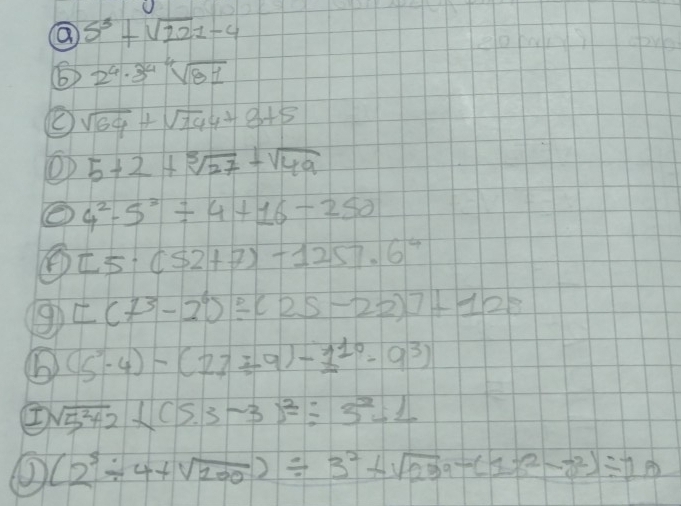 a) 5³ + √121 - 4
b) 2⁴ · 3⁴ ⁴√81
c) √64 + √144 + 3 + 5
D) 5 + 2 + ³√27 + √49
e) 4² · 5³ ÷ 4 + 16 - 250
f) [5 · (52 + 7) - 125] · 6⁴
g) [(7³ - 2⁶) ÷ (25 - 22)] + 125
h) (5³ · 4) - (27 ÷ 9) - 11⁰ · 9³)
I) √5²+2 + (5·3 - 3)² ÷ 3² - 1
J) (2⁵ ÷ 4 + √100) ÷ 3² +